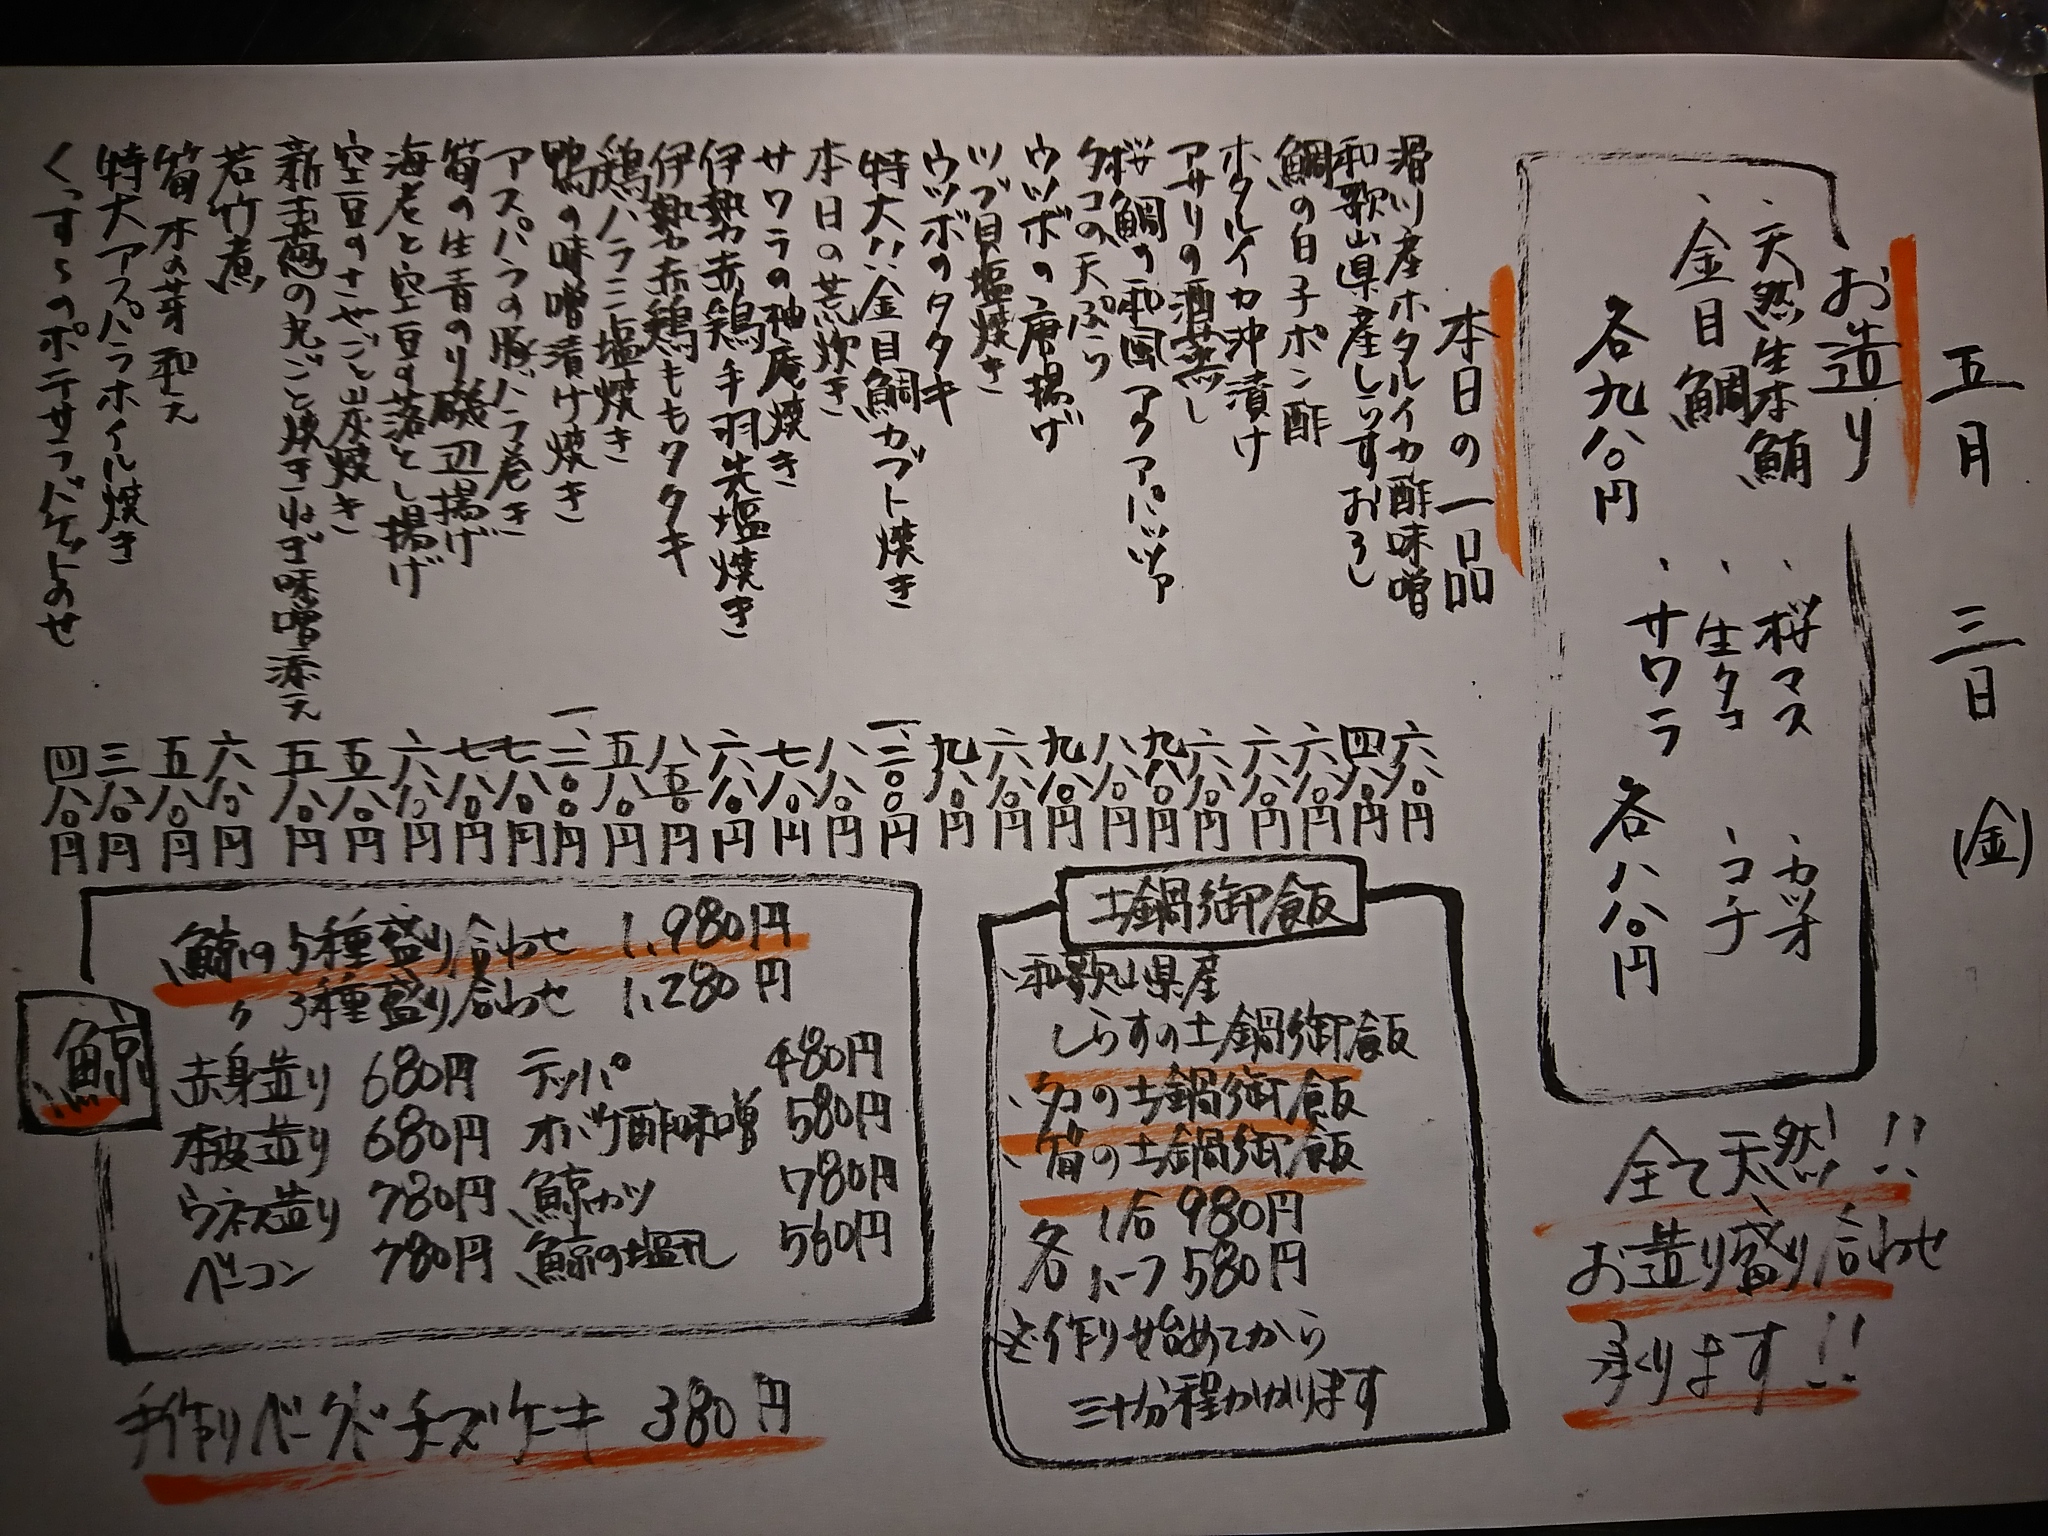 五月三日(金)
お造り
、天然生本鮪
、金目鯛
各九八〇円
、桜マス
、生タコ
、サワラ
、カツオ
、コチ
各八八〇円
全て天然!!
お造り盛り合わせ
承ります!!
本日の一品
滑川産ホタルイカ酢味噌 六八〇円
和歌山県産しらすおろし 四八〇円
鯛の白子ポン酢 六八〇円
ホタルイカ沖漬け 六八〇円
アサリの酒蒸し 六八〇円
桜鯛の和風アクアパッツァ 九八〇円
タコの天ぷら 八八〇円
ウツボの唐揚げ 九八〇円
ツブ貝塩焼き 六八〇円
ウツボのタタキ 九八〇円
特大!!金目鯛カブト焼き 一、二〇〇円
本日の荒炊き 八八〇円
サワラの柚庵焼き 七八〇円
伊勢赤鶏手羽先塩焼き 六八〇円
伊勢赤鶏ももタタキ 八五〇円
鶏ハラミ塩焼き 五八〇円
鴨の味噌漬け焼き 一、二〇〇円
アスパラの豚バラ巻き 七八〇円
筍の生青のり磯辺揚げ 七八〇円
海老と空豆の落とし揚げ 六八〇円
空豆のさやごと炭焼き 五八〇円
新玉葱の丸ごと焼きねぎ味噌添え 五八〇円
若竹煮 六八〇円
筍木の芽和え 五八〇円
特大アスパラホイル焼き 三八〇円
くずしのポテサラバケットのせ 四八〇円
土鍋御飯
、和歌山県産
しらすの土鍋御飯
、タコの土鍋御飯
、筍の土鍋御飯
各 1合 980円
ハーフ 580円
※作り始めてから
三十分程かかります
鯨
鯨の5種盛り合わせ 1,980円
〃 3種盛り合わせ 1,280円
赤身造り 680円 テッパ 480円
本皮造り 680円 オバケ酢味噌 580円
ウネス造り 780円 鯨カツ 780円
ベーコン 780円 鯨の塩 560円
手作りベークドチーズケーキ 380円